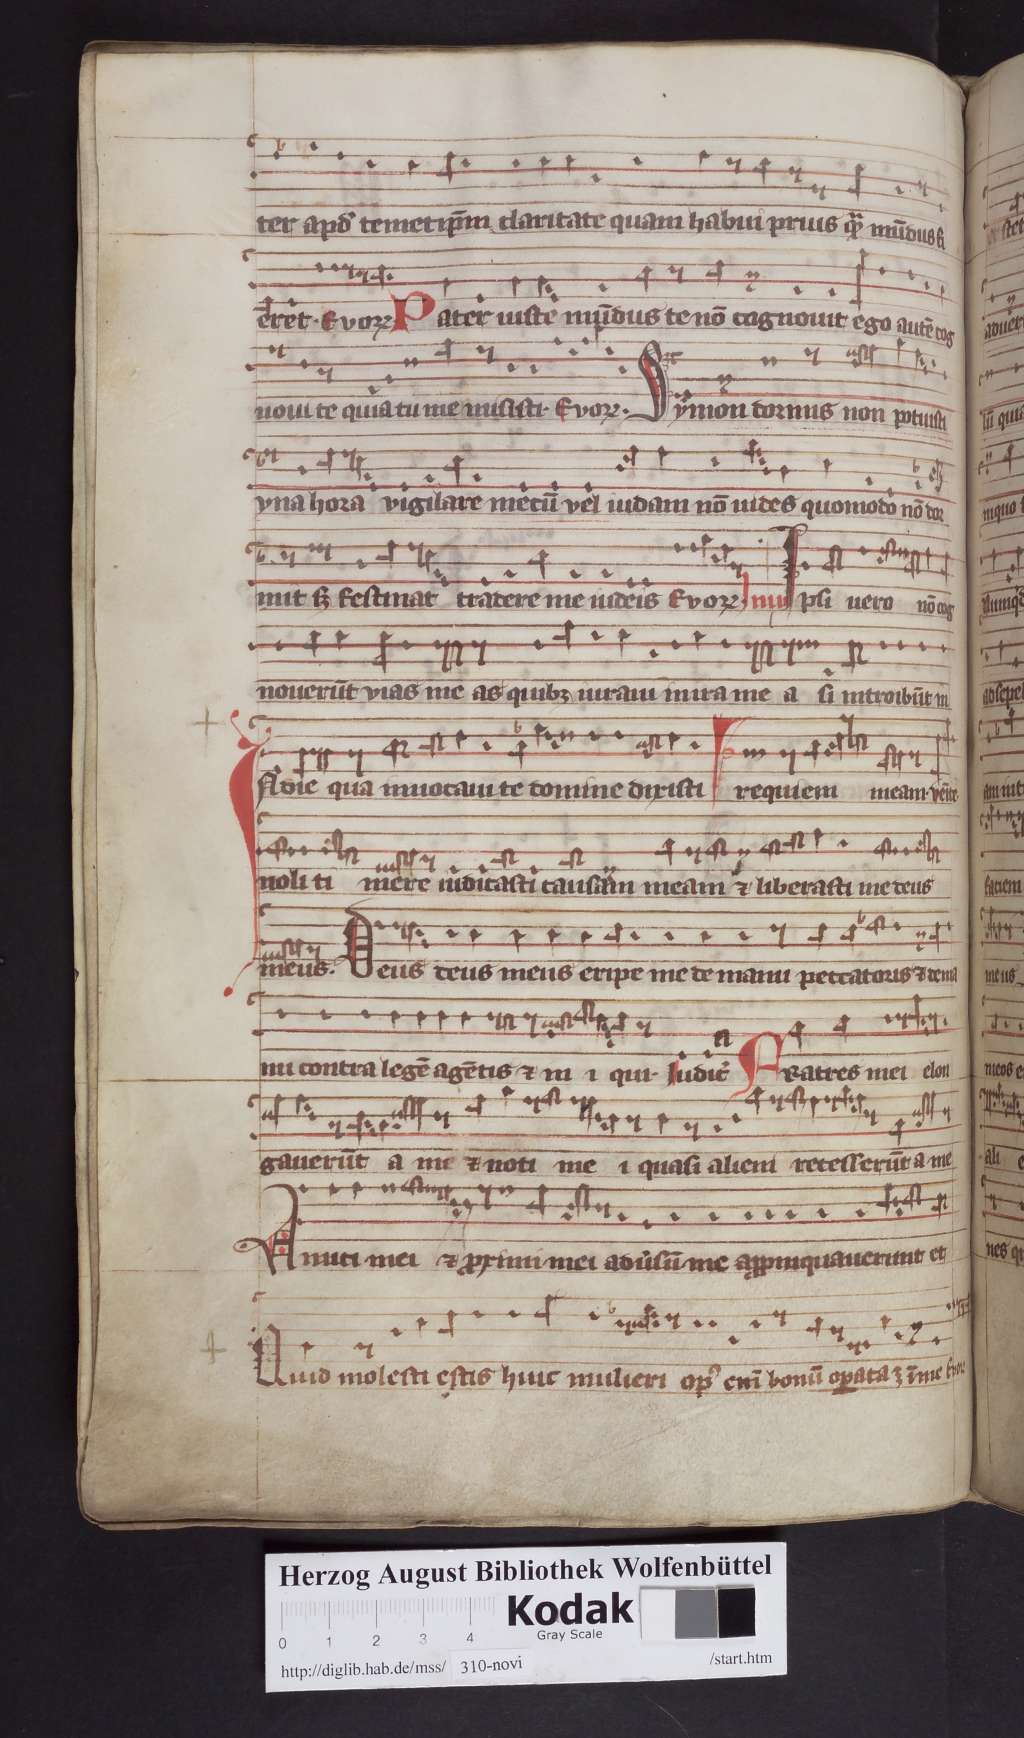 ter apd̕ temetip̄m claritate quam habui prius qͣ mūdus fi
eret. Evoꝝ Pater iuste mūdus te nō cognouit ego autē cog
noui te quia tu me misisti. Evoꝝ. Symon dormis non potuisti
vna hora vigilare mecū vel iudam nō uides quomodo nō dor
mit sꝫ festinat tradere me iudeis Evoꝝ Inui Ipsi uero nō cog
nouerūt vias me as quibꝫ iuraui in ira me a si introibūt in
In die qua inuocaui te domine dixisti requiem meam. v̄
noli ti mere iudicasti causam meam ⁊ liberasti me deus
meus. Deus deus meus eripe me de manu peccatoris ⁊ de ma
nu contra legē agētis ⁊ in i qui. Iudic̄ Fratres mei elon
gauerūt a me ⁊ noti me i quasi alieni recesserūt a me
Amici mei ⁊ proximi mei aduersū me appropinquauerunt et
Quid molesti estis huic mulieri op̕ eni̅ bonū operata ē ī me Evoꝝ
Herzog August Bibliothek Wolfenbüttel
Kodak
Gray Scale
0 1 2 3 4
http://diglib.hab.de/mss/ 310-novi /start.htm